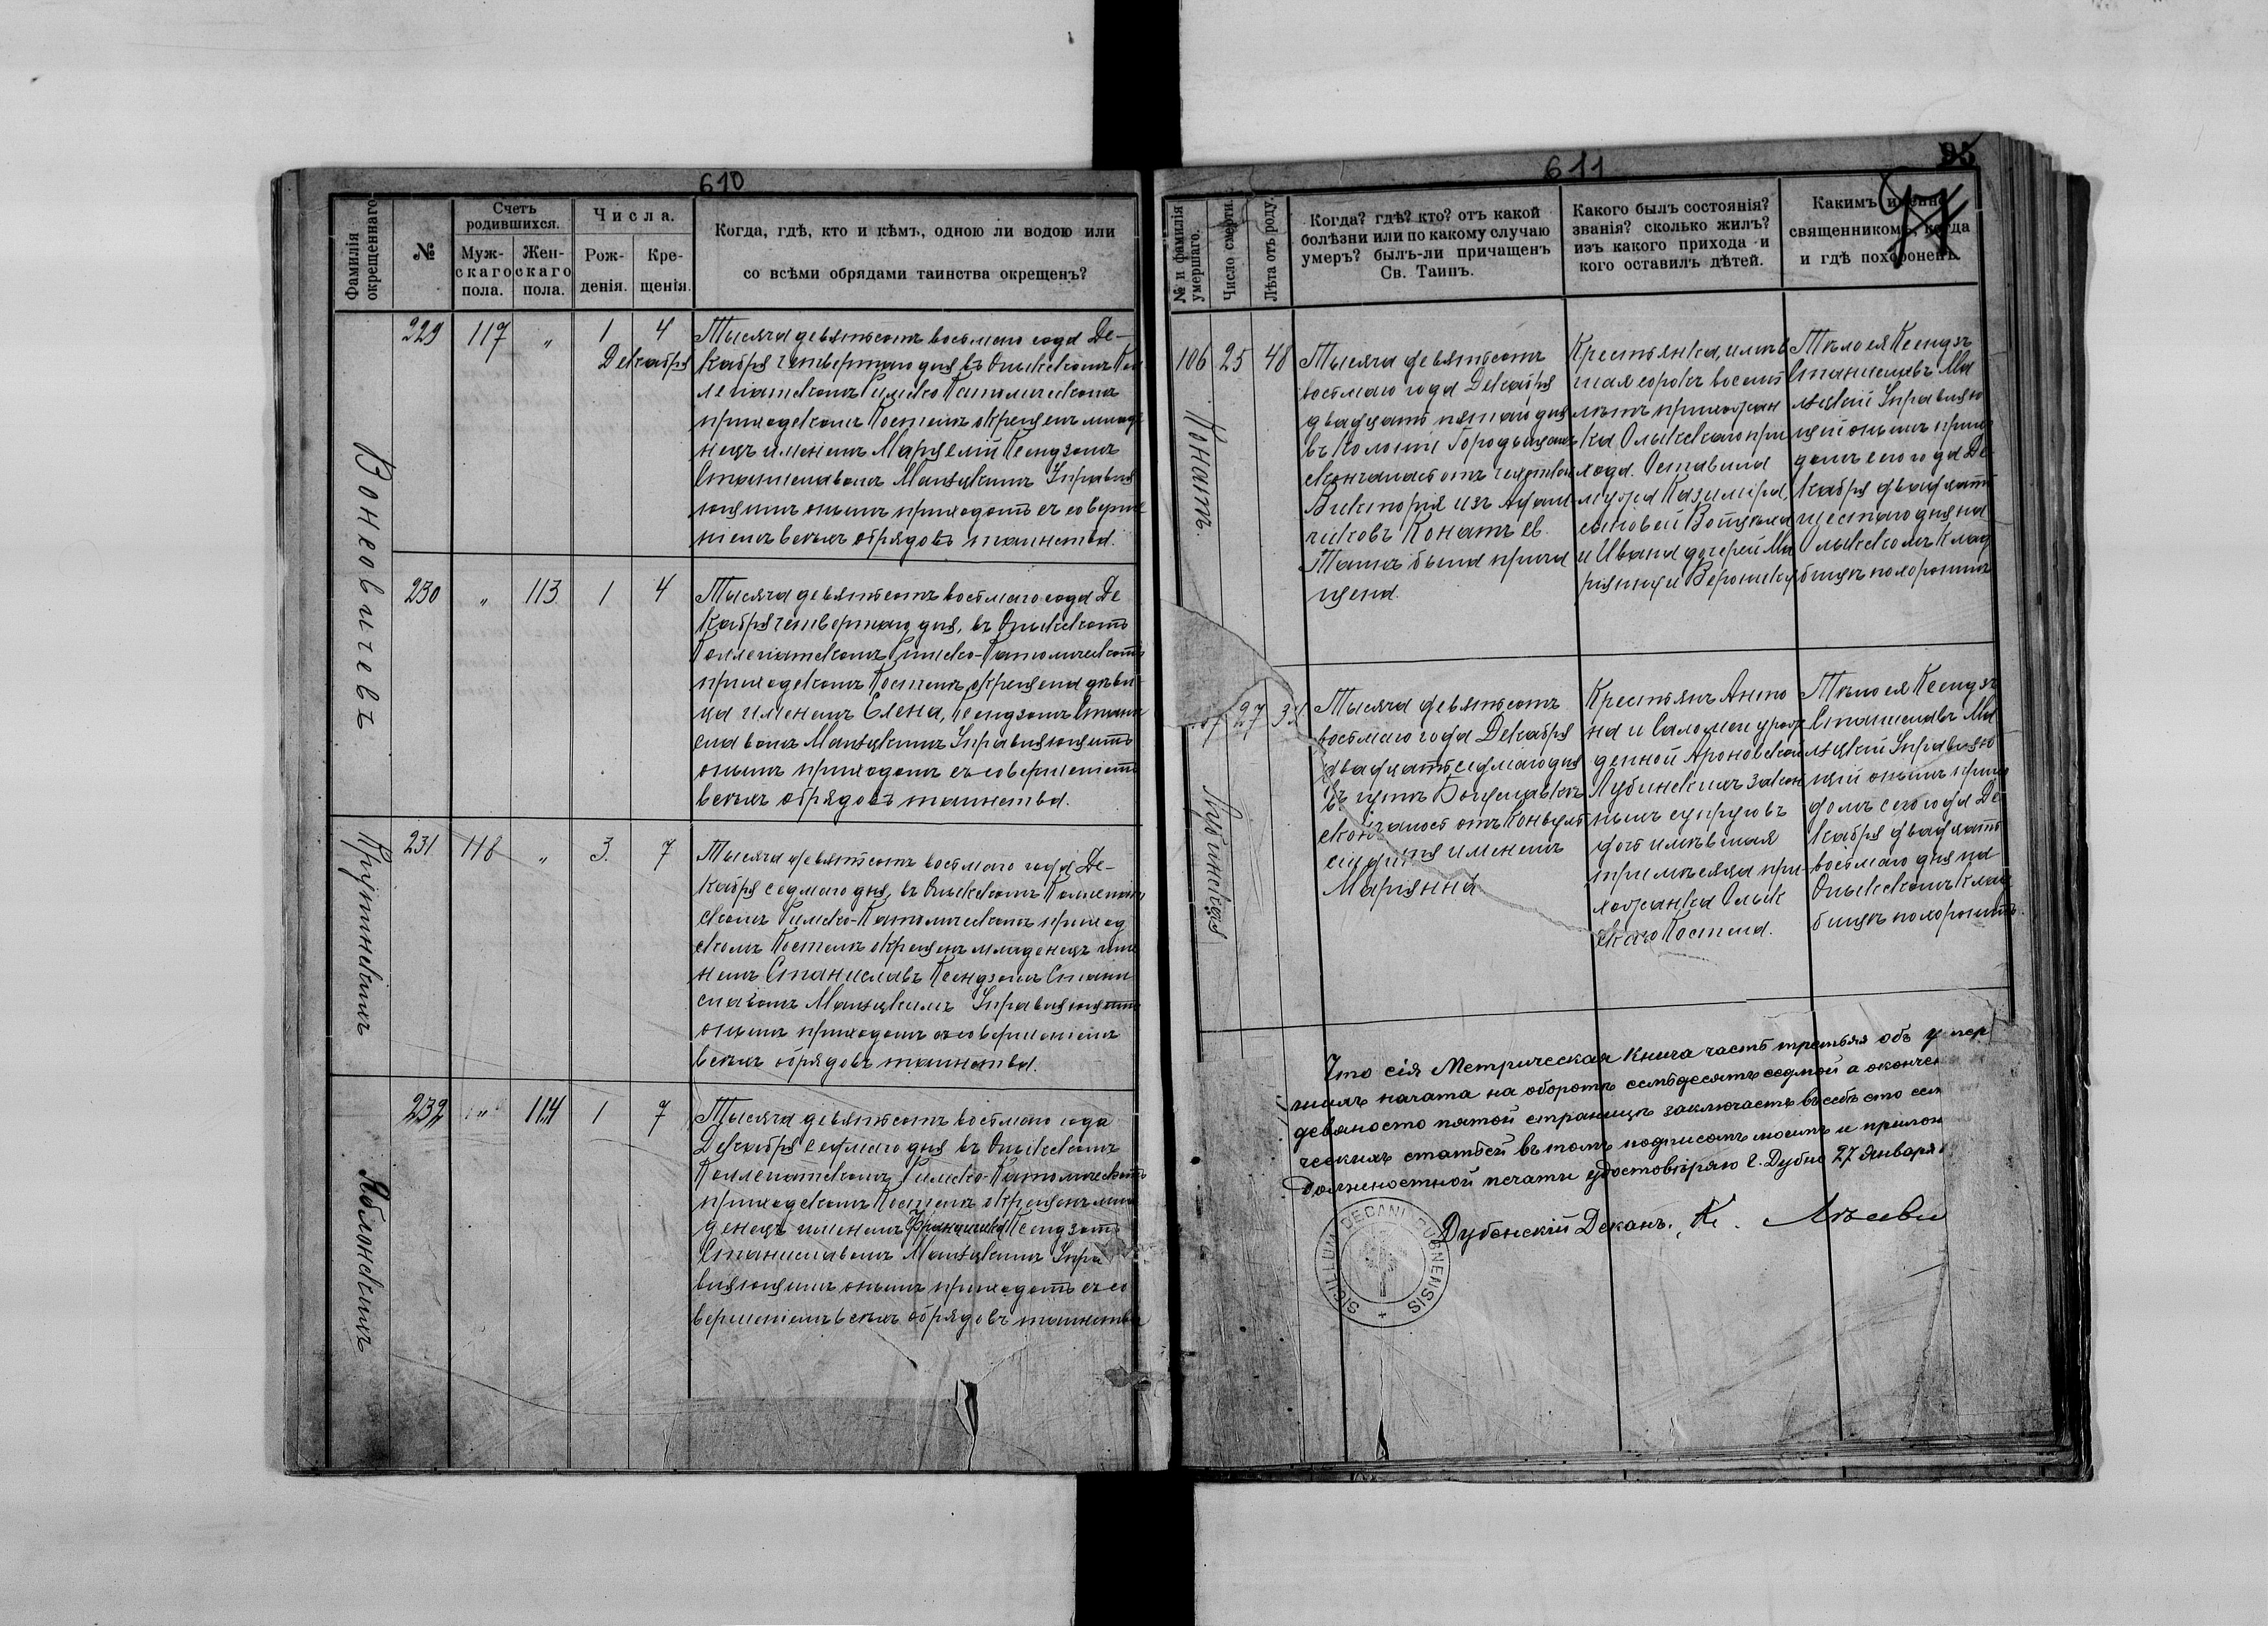 610
Фамилія окрещеннаго
№
Счетъ родившихся.
Муж-скаго пола.
Жен-скаго пола.
Числа.
Рож-денія.
Кре-щенія.
Когда, гдѣ, кто и кѣмъ, одною ли водою или
со всѣми обрядами таинства окрещенъ?
229 117 „ 1 4
Декабря
Тысяча девятьсотъ восьмаго года Де-
кабря четвертаго дня въ Олыкскомъ Кол
легіатскомъ Римско Католическомъ
приходскомъ Костелѣ окрещенъ младе
нецъ именемъ Марцелій Ксендзомъ
Станиславомъ Управля
ющимъ онымъ приходомъ съ соверше
ніемъ всѣхъ обрядовъ таинства.
230 „ 113 1 4
Тысяча девятьсотъ восьмаго года Де
кабря четвертаго дня, въ Олыкскомъ
Коллегіатскомъ Римско-Католическомъ
приходскомъ Костелѣ, окрещена дѣви
ца именемъ Елена, Ксендзомъ Стани
славомъ Управляющимъ
онымъ приходомъ съ совершеніемъ
всѣхъ обрядовъ таинства.
231 118 „ 3. 7
Тысяча девятьсотъ восьмаго года Де-
кабря седмаго дня, въ Олыкскомъ Коллегіат
скомъ Римско-Католическомъ приход
скомъ Костелѣ окрещенъ младенецъ име
немъ Станиславъ Ксендзомъ Стани
славомъ Управляющимъ
онымъ приходомъ съ совершеніемъ
всѣхъ обрядовъ таинства.
232 „ 114 1 7
Тысяча девятьсотъ восьмаго года
Декабря седмаго дня въ Олыкскомъ
Коллегіатскомъ Римско-Католическомъ
приходскомъ Костелѣ окрещенъ мла
денецъ именемъ Франциска Ксендзомъ
Станиславомъ Упра
вляющимъ онымъ приходомъ съ со
вершеніемъ всѣхъ обрядовъ таинства
Яблонскихъ
611
95
№ и фамилія умершаго.
Число смерти.
Лѣта отъ роду.
Когда? гдѣ? кто? отъ какой
болѣзни или по какому случаю
умеръ? былъ-ли причащенъ
Св. Таинъ.
Какого былъ состоянія?
званія? сколько жилъ?
изъ какого прихода и
кого оставилъ дѣтей.
Какимъ именно
священникомъ, когда
и гдѣ похороненъ.
106 25 48
Конатъ.
Тысяча девятьсотъ
восьмаго года Декабря
двадцать пятаго дня
въ Колоніи
скончалась отъ чахотки
Викторія изъ Адам
чиковъ Конатъ св.
Таинъ была прича
щена.
Крестьянка, имѣв
шая сорокъ восемь
лѣтъ прихожан
ка Олыкскаго при
хода. Оставила
мужа Казиміра,
сыновей Войцѣха
и Ивана дочерей Ма
ріянну и Веронику
Тѣло ея Ксендзъ
Станиславъ
Управляю
щій онымъ прихо
домъ сего года Де
кабря двадцать
шестаго дня на
Олыкскомъ клад
бищѣ похоронилъ
27
Лубинская
Тысяча девятьсотъ
восьмаго года Декабря
двадцать седмаго дня
въ
скончалось отъ конвуль
сіи дитя именемъ
Маріянна
Крестьянъ Анто
на и Саломеи урож
денной Ароновской
Лубинскихъ закон
ныхъ супруговъ
дочь имѣвшая
три мѣсяца при-
хожанка Олык
скаго Костела.
Тѣло ея Ксендзъ
Станиславъ
Управляю
щій онымъ прихо
домъ сего года Де
кабря двадцать
восьмаго дня на
Олыкскомъ клад
бищѣ похоронилъ.
Что сія Метрическая Книга часть третья объ умер
шихъ начата на оборотѣ семьдесятъ седмой а окончен
девяносто пятой страницѣ заключаетъ въ себѣ сто сем
ческихъ статьей въ томъ подписомъ моимъ и прилож
должностной печати удостовѣряю г. Дубно 27 Января
Дубенскій Деканъ, К.
SIGILLUM DECANI DUBNENSIS